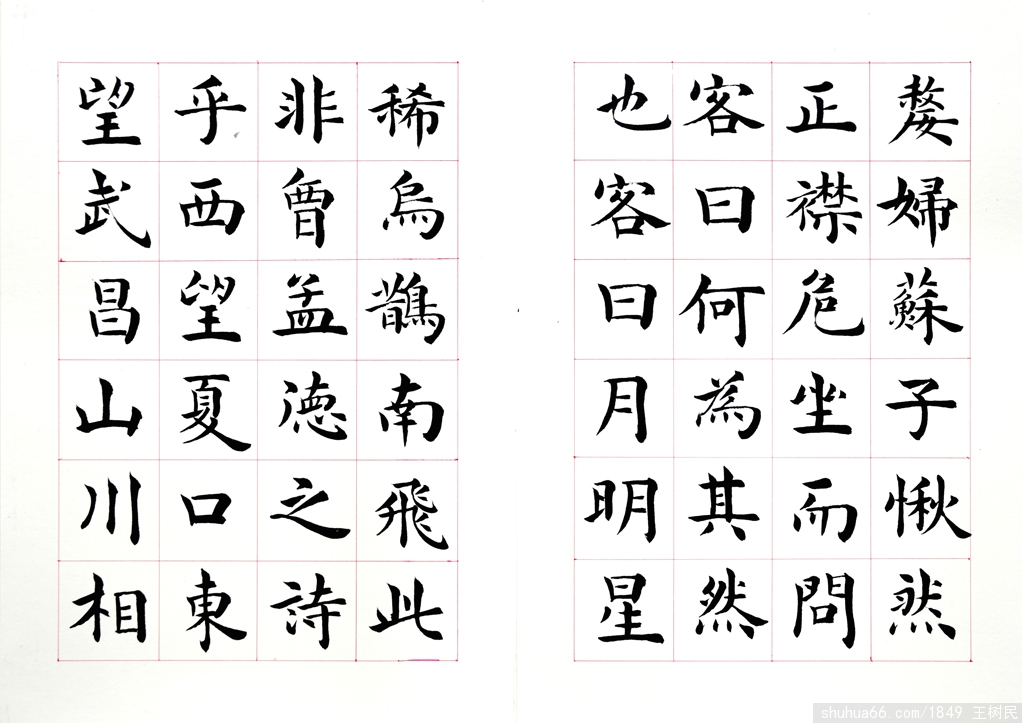 嫠婦蘇子愀然
正襟危坐而問
客曰何為其然
也客曰月明星
稀烏鵲南飛此
非曹孟德之詩
乎西望夏口東
望武昌山川相
shuhua66.com/1849 王树民